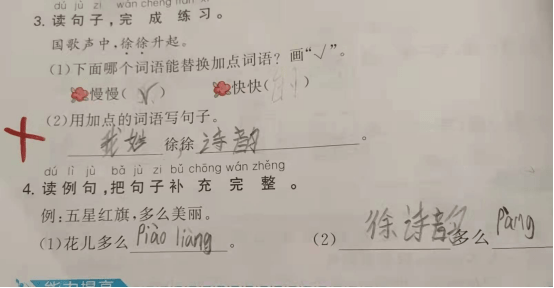 dú jù zǐ wán chéng liàn xí
3. 读句子,完成练习。
国歌声中,徐徐升起。
(1)下面哪个词语能替换加点词语?画“√”。
慢慢(√) 快快( )
(2)用加点的词语写句子。
我姓徐徐诗韵。
dú lì jù bǎ jù zi bǔ chōng wán zhěng
4. 读例句,把句子补充完整。
例:五星红旗,多么美丽。
(1)花儿多么piào liàng。 (2)徐诗韵多么pàng
能力提高